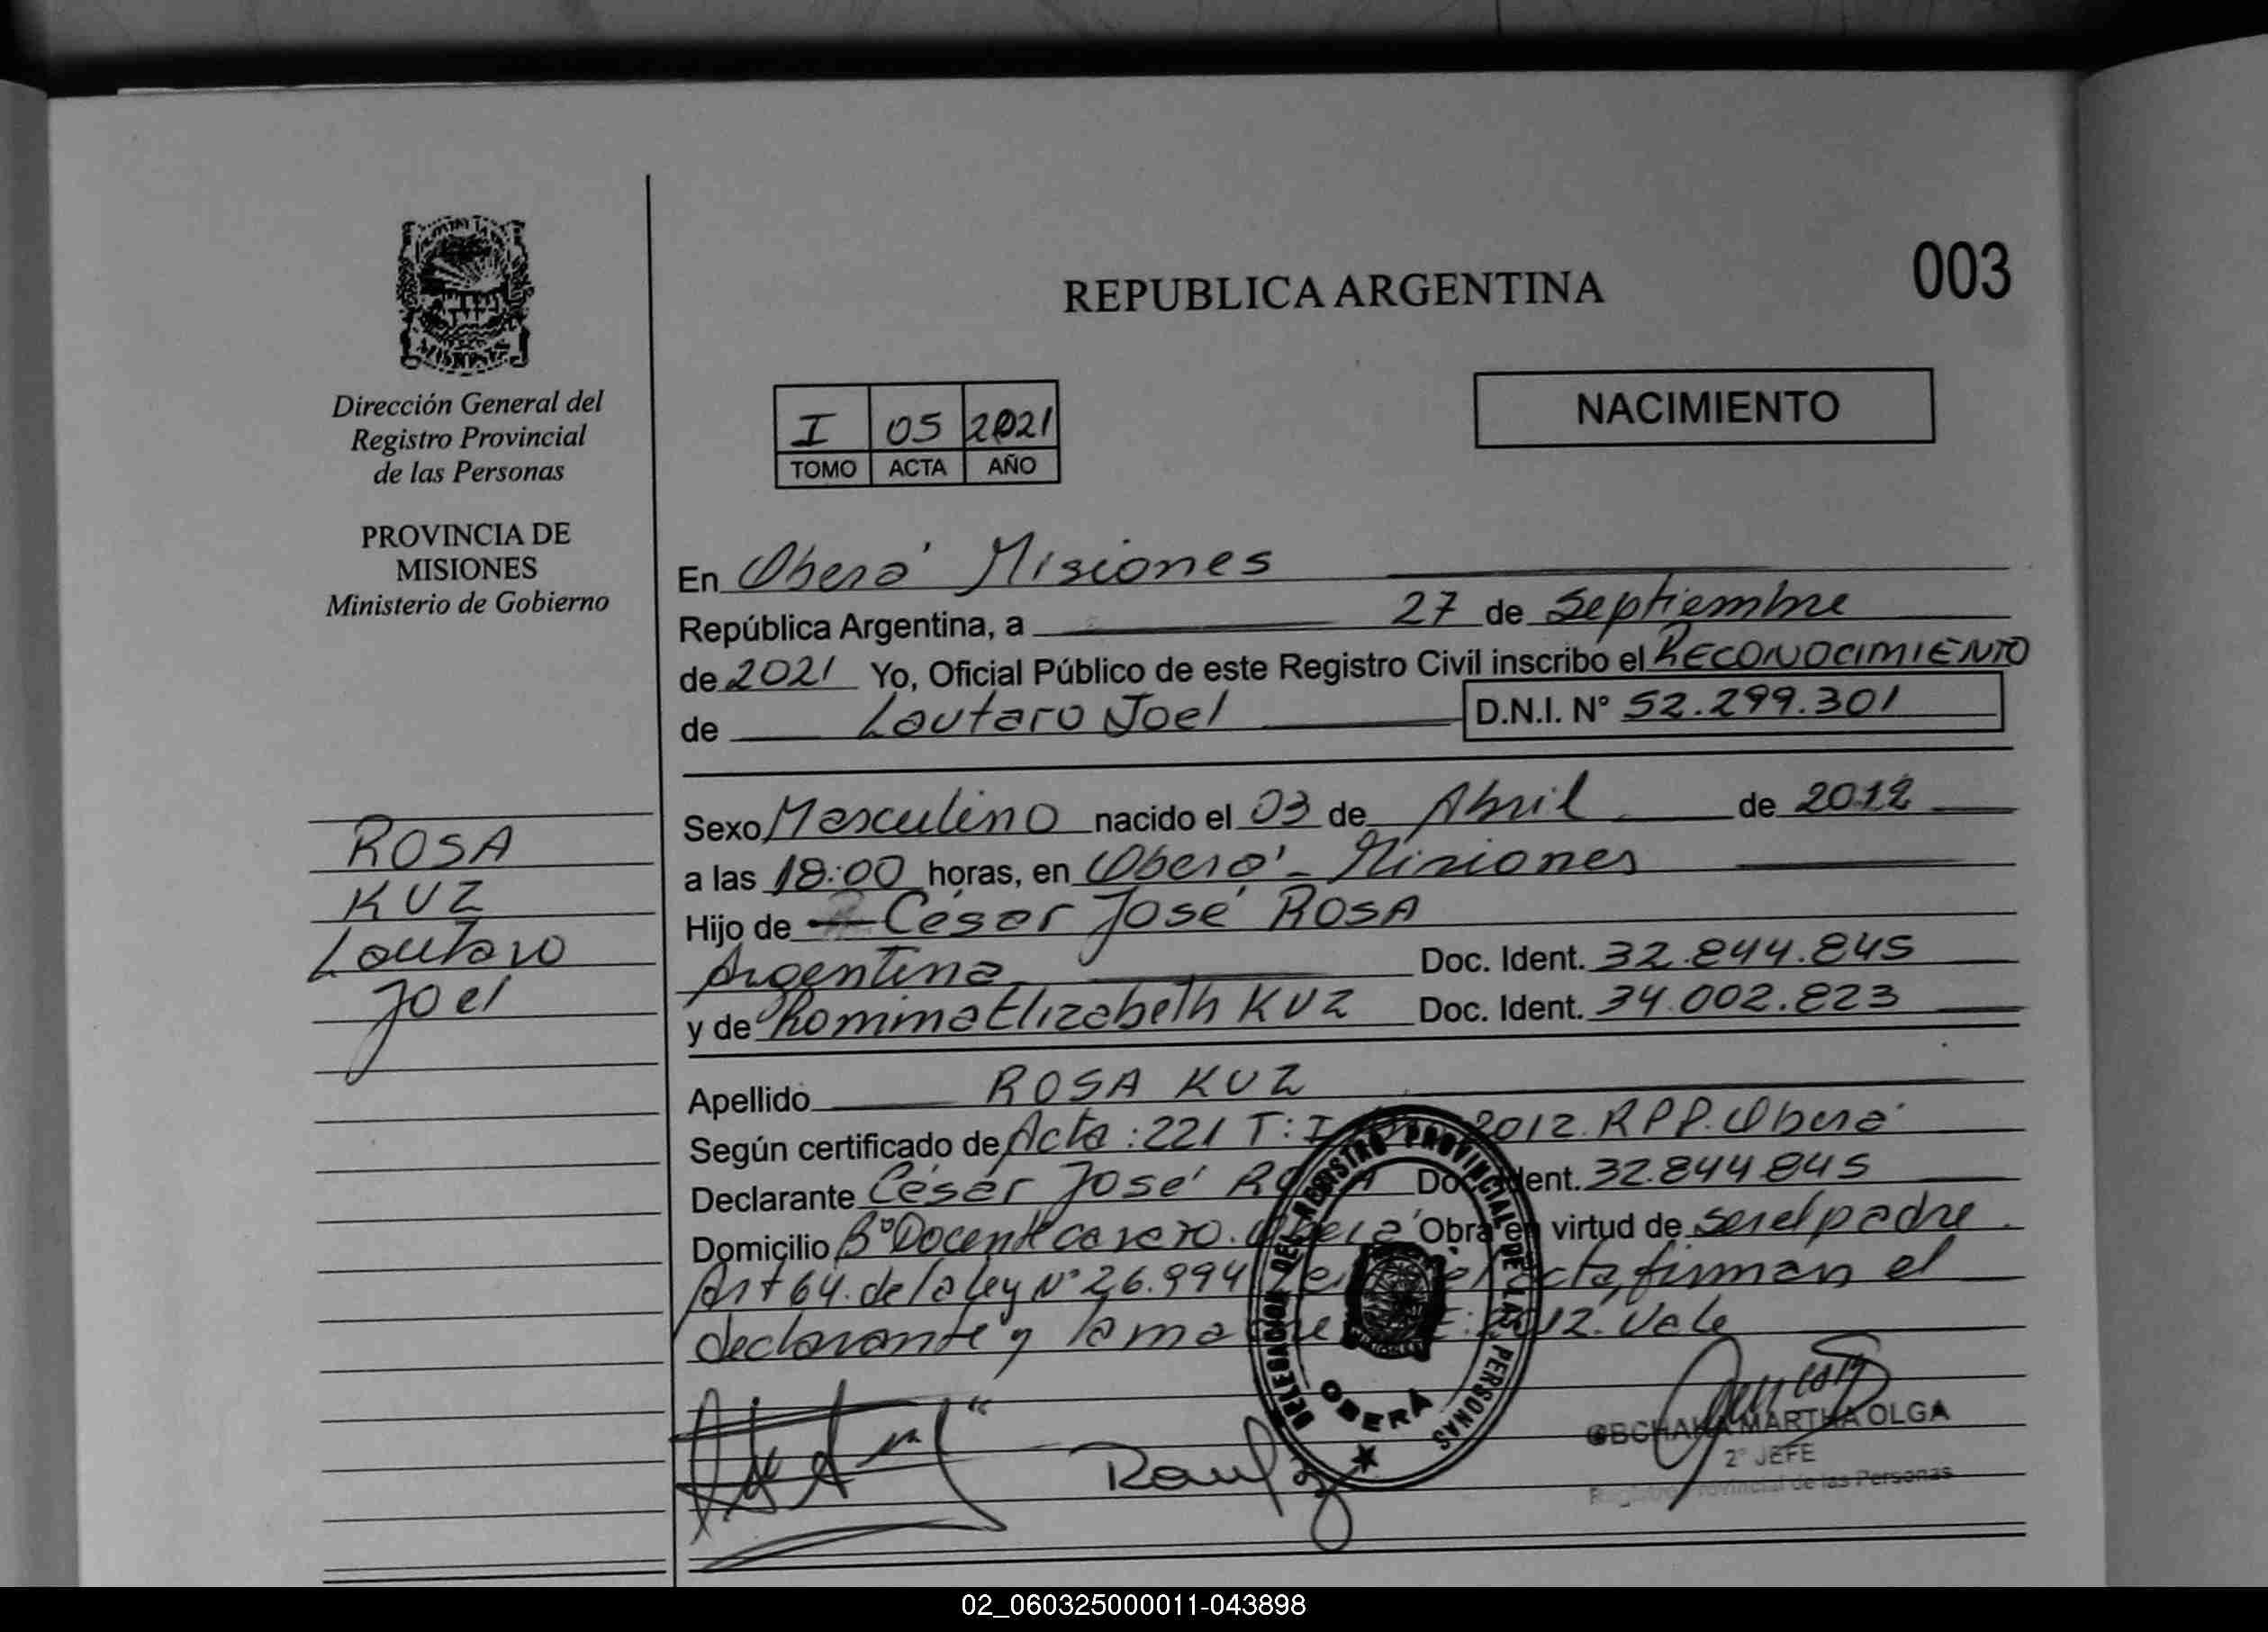 REPUBLICA ARGENTINA
003
Dirección General del
Registro Provincial
de las Personas
PROVINCIA DE
MISIONES
Ministerio de Gobierno
I 05 2021
TOMO ACTA AÑO
NACIMIENTO
En Oberá Misiones
República Argentina, a 27 de Septiembre
de 2021 Yo, Oficial Público de este Registro Civil inscribo el RECONOCIMIENTO
de Lautaro Joel D.N.I. N° 52.299.301
ROSA
KUZ
Lautaro
Joel
Sexo Masculino nacido el 03 de Abril de 2012
a las 18:00 horas, en Oberá - Misiones
Hijo de César José ROSA
Argentina Doc. Ident. 32.844.845
y de Romina Elizabeth KUZ Doc. Ident. 34.002.823
Apellido ROSA KUZ
Según certificado de Acta: 221 T: I 2012. RPP. Oberá
Declarante César José ROSA Doc. Ident. 32.844.845
Domicilio B° Docente casero. Oberá Obra en virtud de ser el padre.
Art 64. de la ley N° 26.994 acta, firman el
declarante y la madre E: 2012. Vale
DELEGACION DEL REGISTRO PROVINCIAL DE LAS PERSONAS
OBERA
MARTHA OLGA
2° JEFE
Registro Provincial de las Personas
02_060325000011-043898